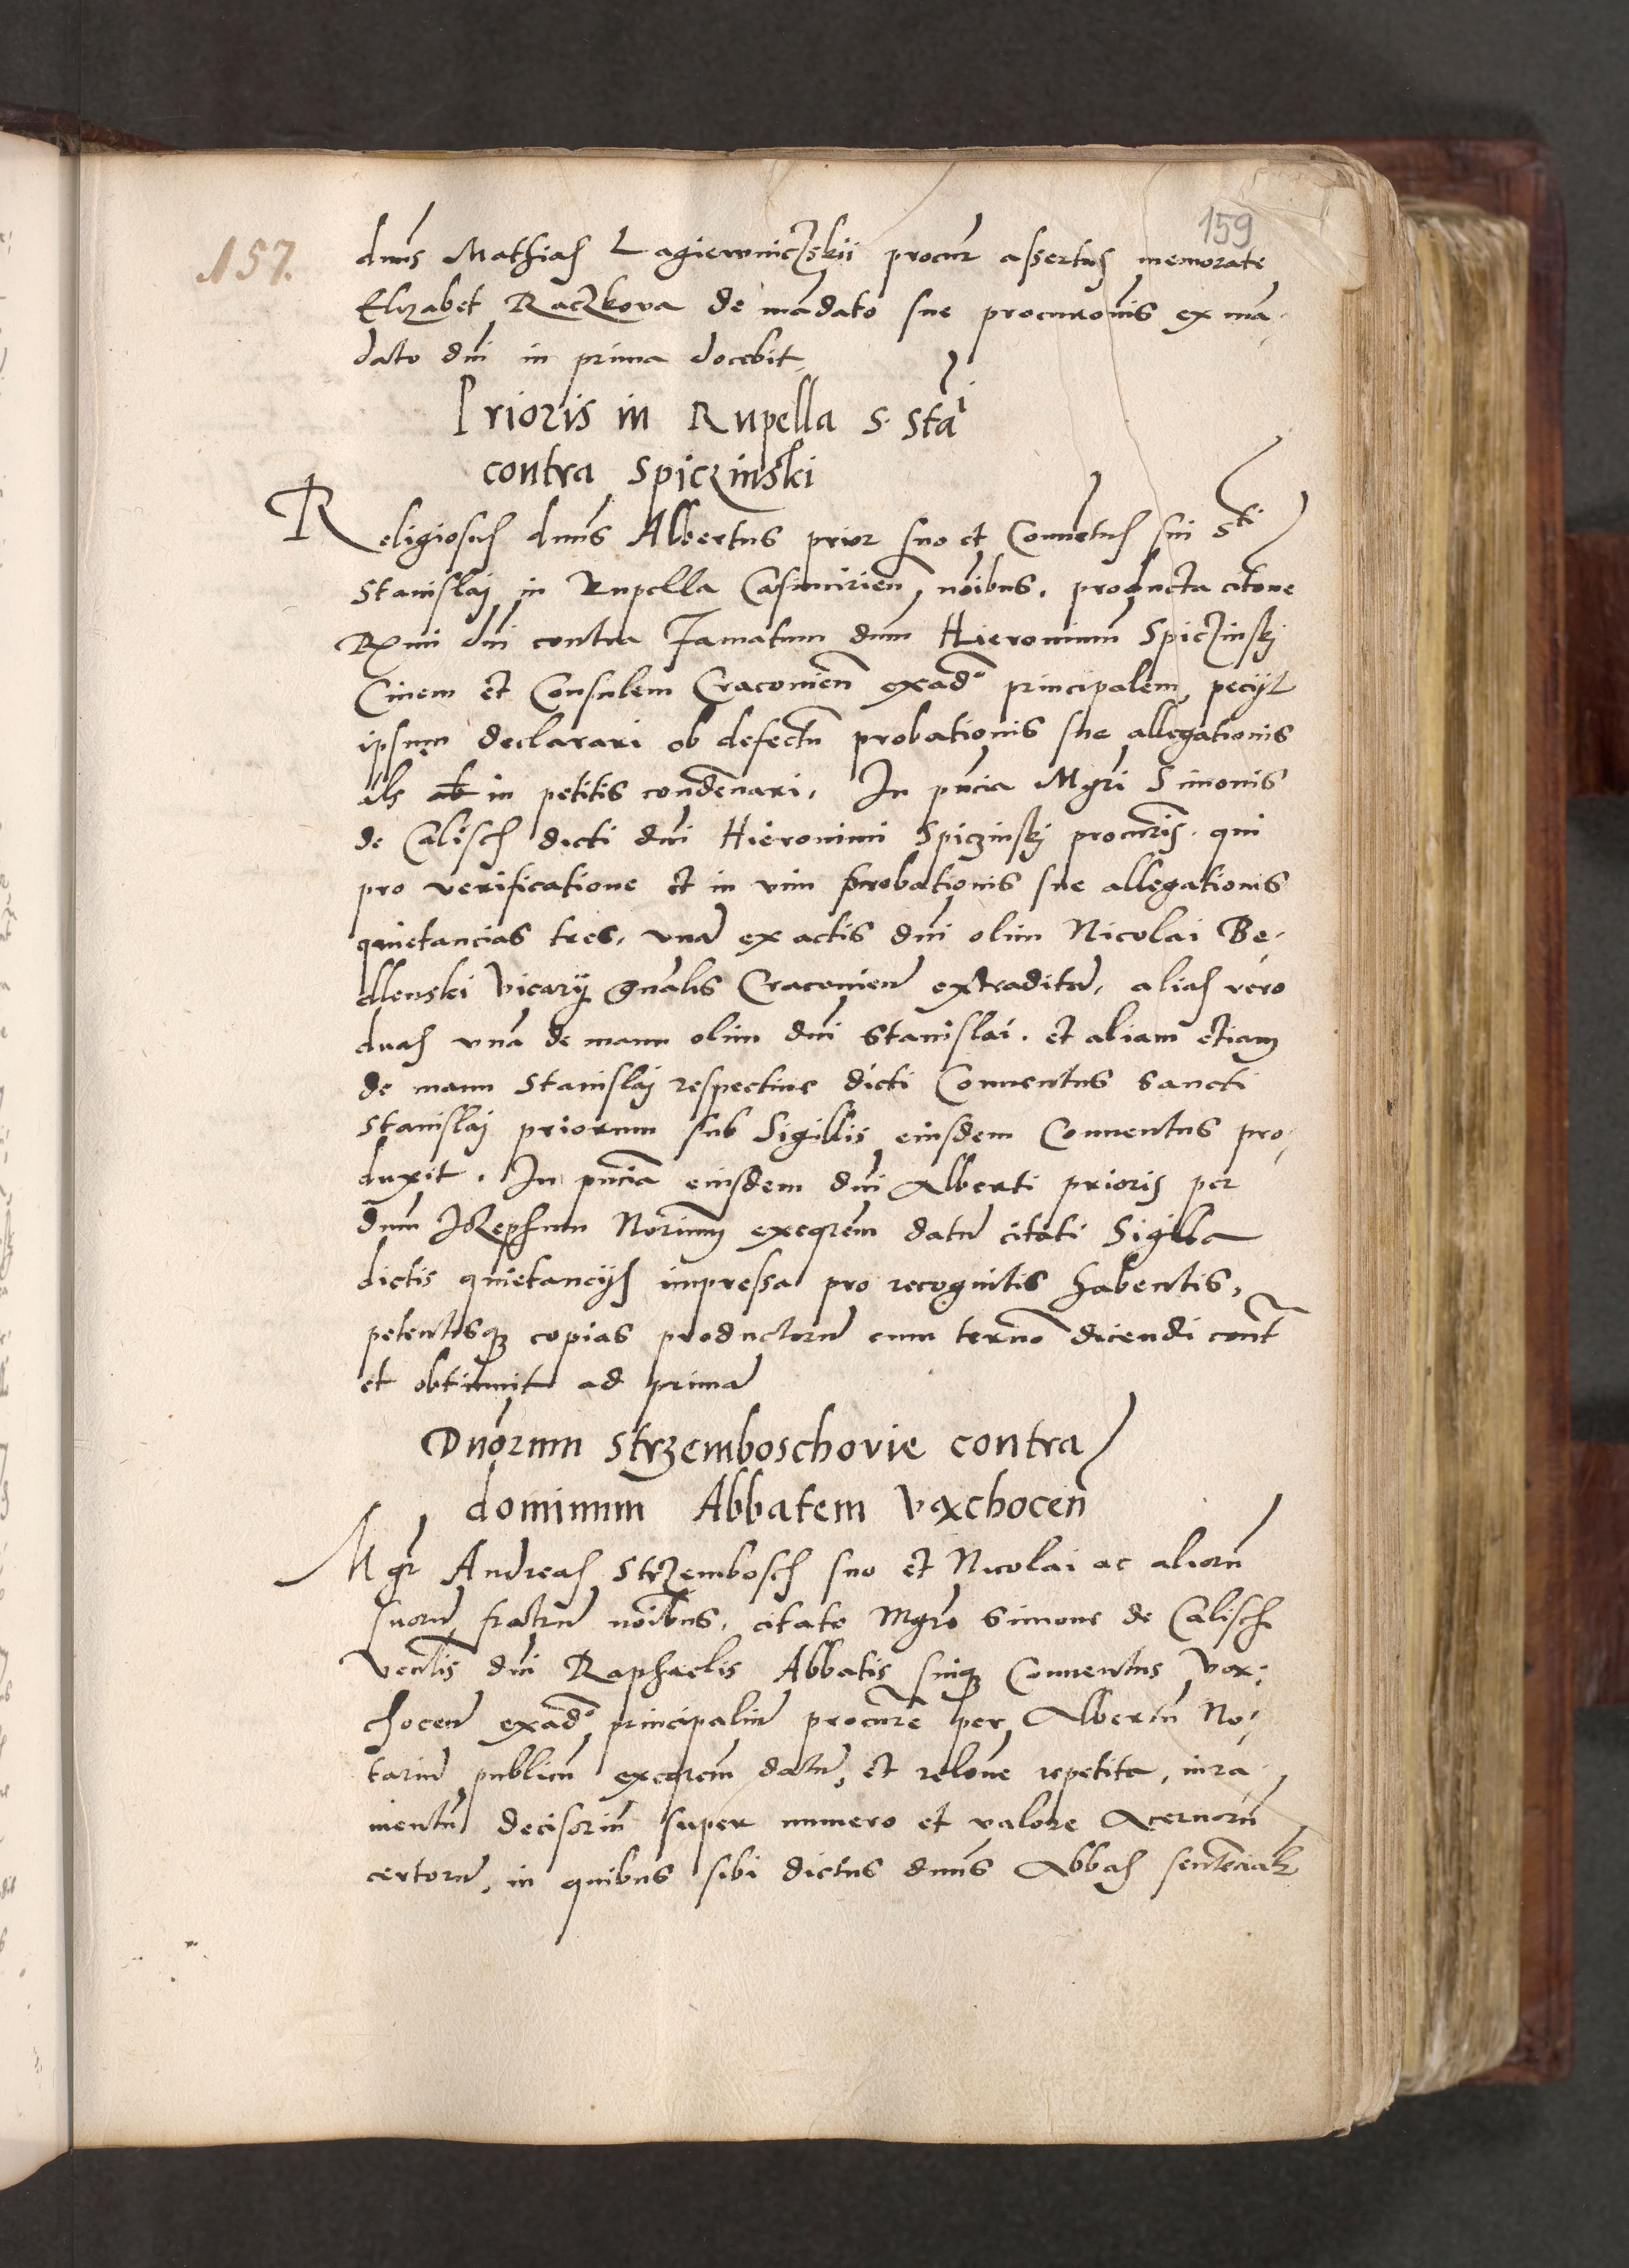 159
157.
dnus Mathias Lagiewniczskii procur assertus memorate
Elizabet Raczkova de mādato sue procuronis ex mā-
dato dni in prima docebit
Prioris in Rupella S. Stai
contra Spiczinski
Religiosus dnus Albertus prior suo et Conventus sui Sti
Stanislaj in Rupella Casimirien noibus, producta citone
Rmi dni contra famatum dnm Hieronimum Spiczinskj
Civem et Consulem Cracovien exad. principalem, peciit
ipsum declarari ob defectu probationis sue allegationis
als ab in petitis condenari. In pncia Mgri Simonis
de Calisch dicti dni Hieronimi Spiczinskj procuris. qui
pro verificatione et in vim probationis sue allegationis
quietancias tres, vna ex actis dni olim Nicolai Be-
dlenski Vicarij gnalis Cracovien extradita, alias vero
duas vna de manu olim dni Stanislai. et aliam etiam
de manu Stanislaj respective dicti Conventus sancti
Stanislaj priorum sub Sigillis eiusdem Conventus pro-
duxit. In pncia eiusdem dni Alberti prioris per
dnm Norium exeqrem datu citati Sigilla
dictis quietanciis impressa pro recognitis habentis,
petentisq copias productoru cum termo dicendi cont
et obtinuit ad prima
Duorum Strzemboschovie contra
dominum Abbatem Vaxchocen
Mgr Andreas Strzembosch suo et Nicolai ac aliorū
suoru fratru noibus, citato Mgro Simone de Calisch
Venlis dni Raphaelis Abbatis suiq Conventus Vax-
chocen exad. principaliu procure per Albertū No-
tariu publicū exeqrem datu, et relone repetita, iura-
mentū decisoriū super numero et valore Acervorū
certoru, in quibus sibi dictus dnus Abbas sentencialr